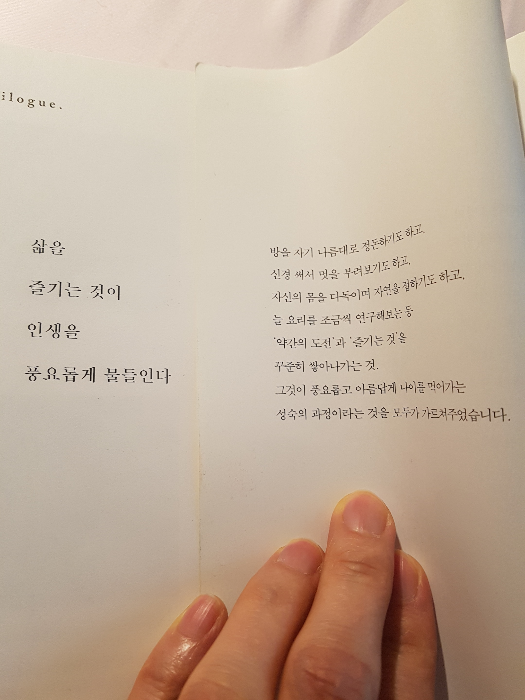 ilogue.
삶을
즐기는 것이
인생을
풍요롭게 물들인다
방을 자기 나름대로 정돈하기도 하고,
신경 써서 멋을 부려보기도 하고,
자신의 몸을 다독이며 자연을 접하기도 하고,
늘 요리를 조금씩 연구해보는 등
'약간의 도전'과 '즐기는 것'을
꾸준히 쌓아나가는 것.
그것이 풍요롭고 아름답게 나이를 먹어가는
성숙의 과정이라는 것을 모두가 가르쳐주었습니다.